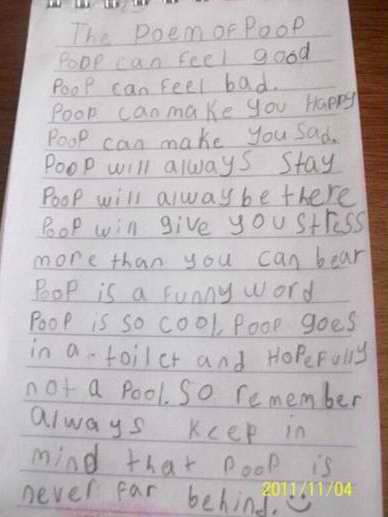 The Poem of Poop
Poop can feel good
Poop can feel bad.
Poop can make you Happy
Poop can make you sad.
Poop will always stay
Poop will alway be there
Poop will give you stress
more than you can bear
Poop is a funny word
Poop is so cool, Poop goes
in a toilet and Hopefully
not a Pool. So remember
always keep in
mind that Poop is
never far behind.
2011/11/04